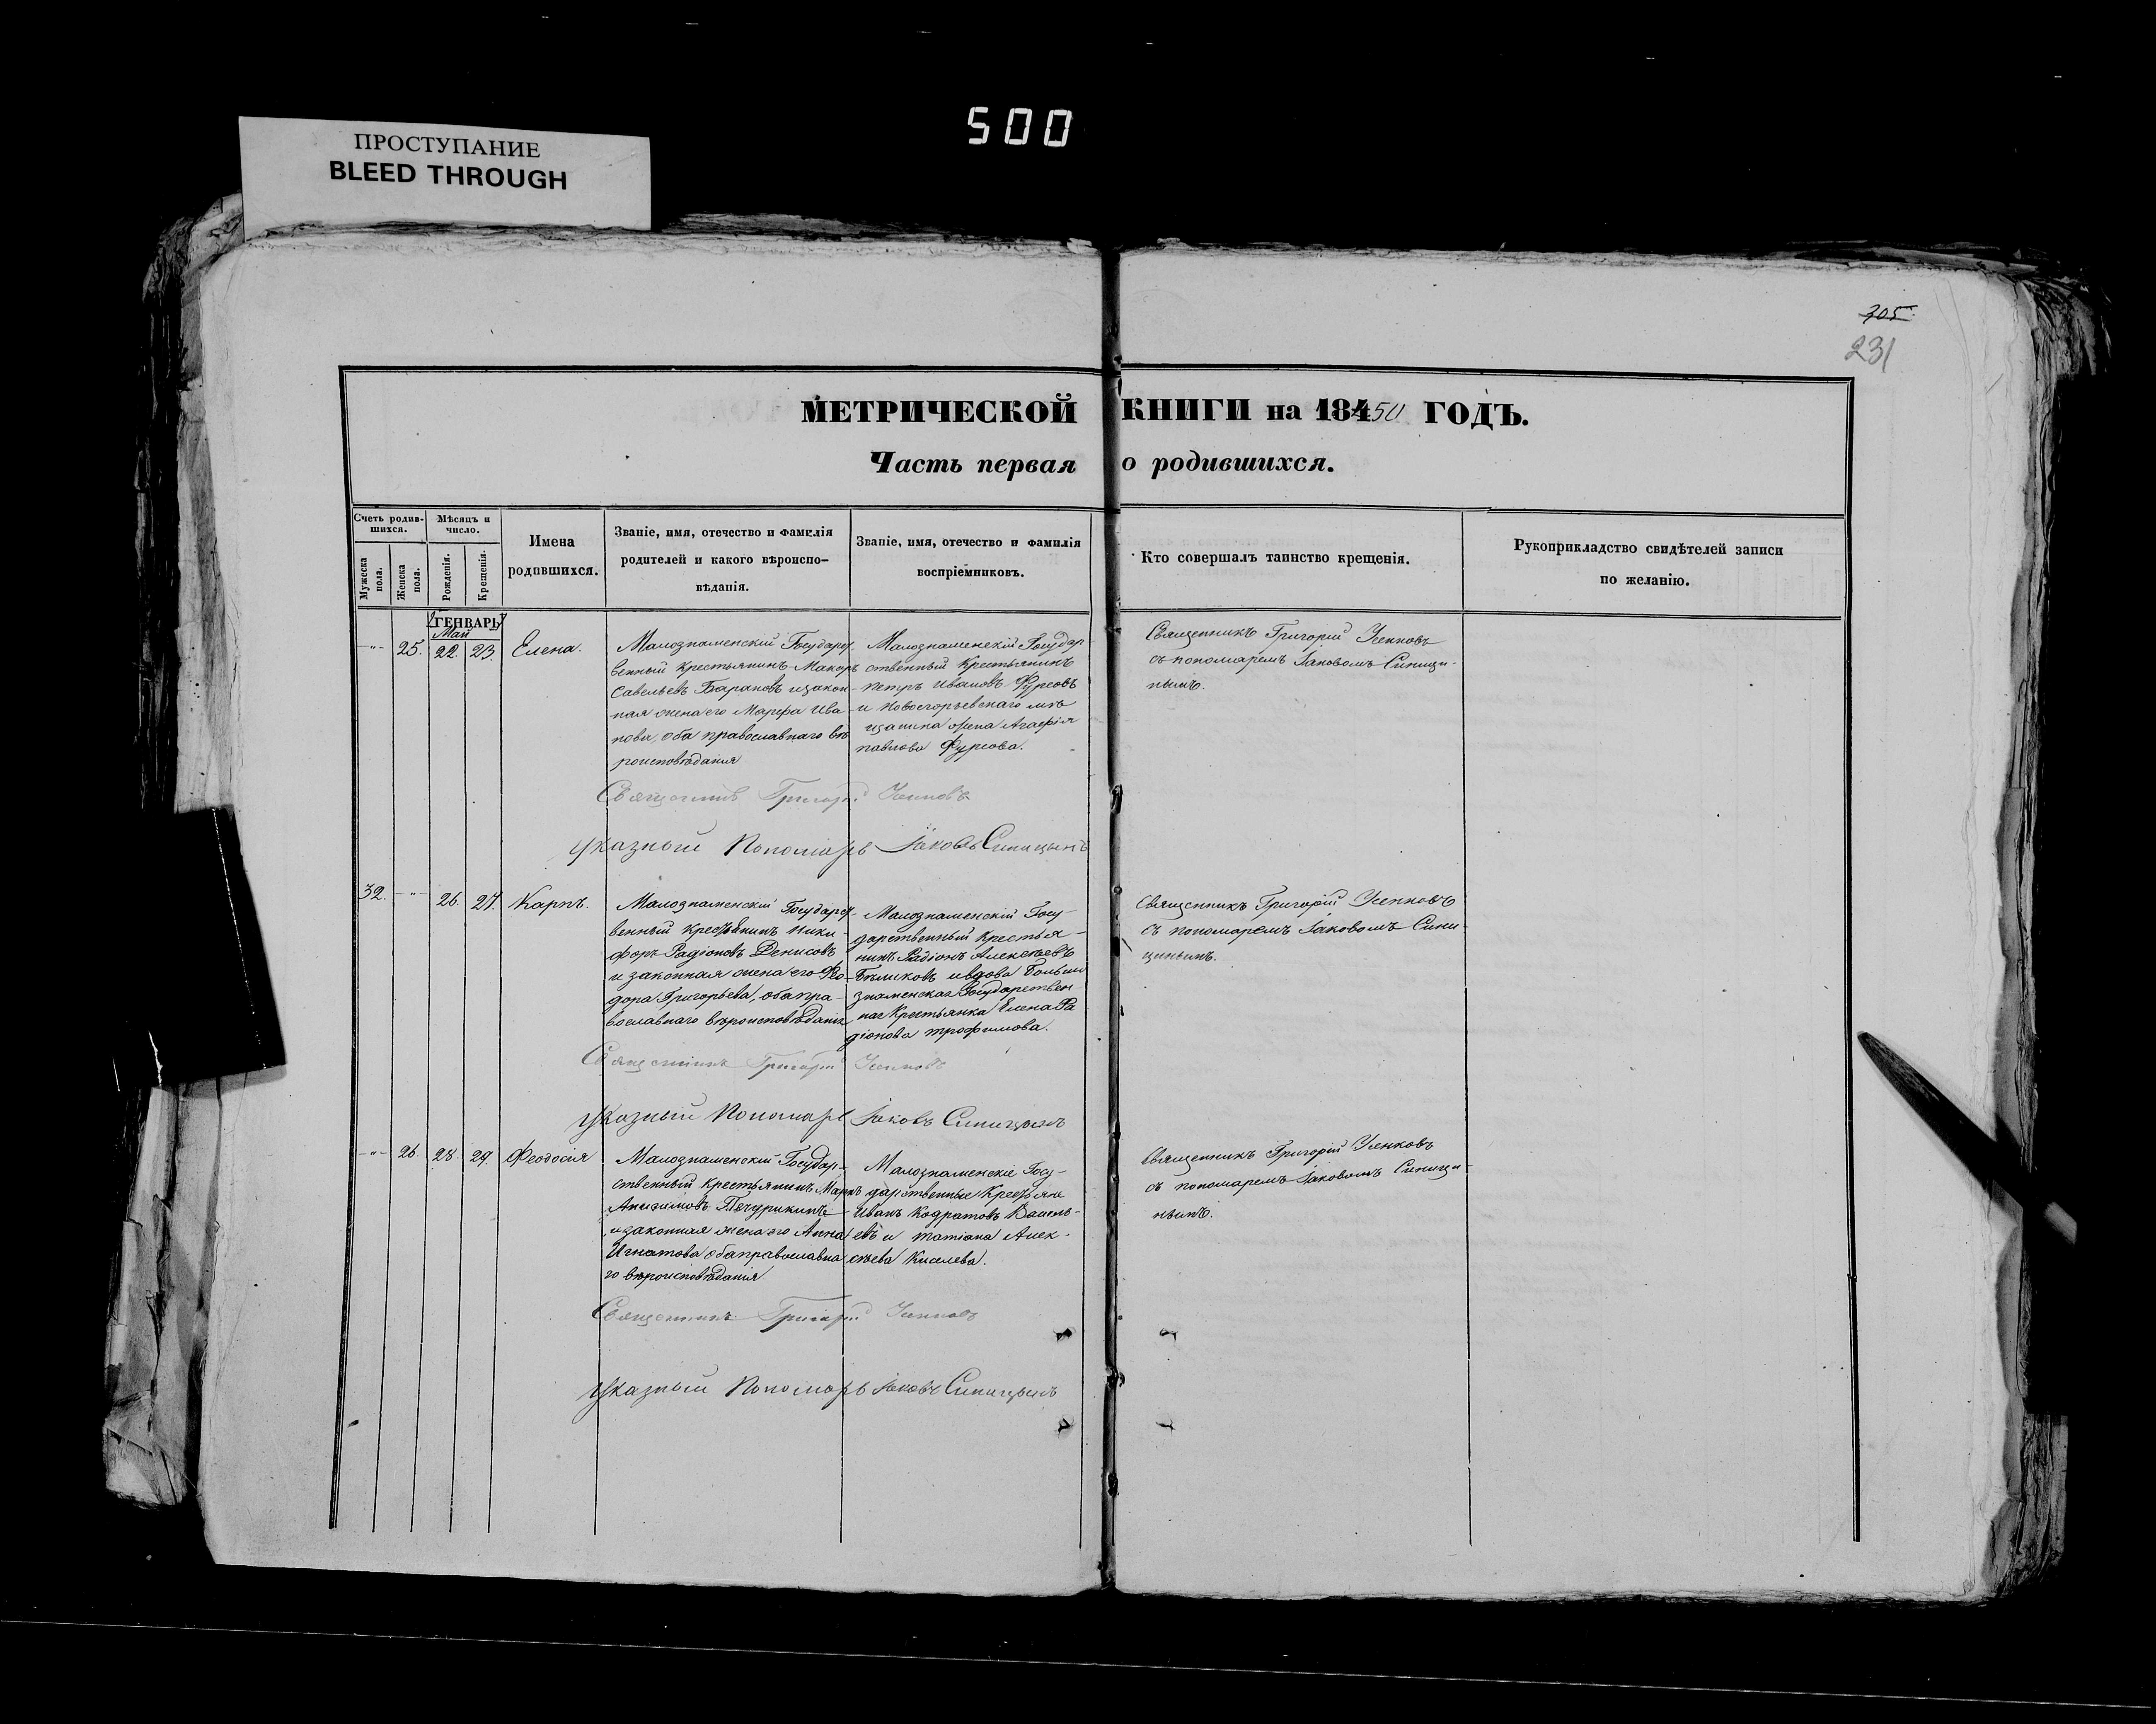 500
ПРОСТУПАНИЕ
BLEED THROUGH
305
231
МЕТРИЧЕСКОЙ КНИГИ на 18450 ГОДЪ.
Часть первая о родившихся.
Счетъ родив-
шихся.
Мужеска пола.
Женска пола.
Мѣсяцъ и
число.
Рожденія.
Крещенія.
Имена
родившихся.
Званіе, имя, отечество и фамилія
родителей и какого вѣроиспо-
вѣданія.
Званіе, имя, отечество и фамилія
воспріемниковъ.
Кто совершалъ таинство крещенія.
Рукоприкладство свидѣтелей записи
по желанію.
ГЕНВАРЬ
Май
25. 22. 23. Елена.
Малознаменскій Государст-
венный крестьянинъ Макаръ
Савельевъ Барановъ и закон-
ная жена его Марфа Ива-
нова, оба православнаго вѣ
роисповѣданія
Малознаменскій Государ-
ственный крестьянинъ
Петръ Ивановъ Фурсовъ
и Новогеоргьевскаго мѣ
щанина жена Агафія
Павлова Фурсова.
Священникъ Григорій Усенковъ
съ пономаремъ Іаковомъ Синици-
нымъ.
Священникъ Григорій Усенковъ
указный Пономарь Іаковъ Синицынъ
32. 26. 27. Карпъ.
Малознаменскій Государст-
венный крестьянинъ Ники-
форъ Радіоновъ Денисовъ
и законная жена его Фео-
дора Григорьева, оба пра-
вославнаго вѣроисповѣданія
Малознаменскій Госу-
дарственный крестья-
нинъ Радіонъ Алексѣевъ
Бѣликовъ и вдова Больше
знаменская Государствен
ная крестьянка Елена Ра
діонова Трофимова.
Священникъ Григорій Усенковъ
съ пономаремъ Іаковомъ Сини-
цинымъ.
Священникъ Григорій Усенковъ
указный Пономарь Іаковъ Синицынъ
26. 28. 29. Феодосія
Малознаменскій Государ-
ственный крестьянинъ Маркъ
Анисимовъ Печурикинъ
и законная жена его Анна
Игнатова оба православна
го вѣроисповѣданія
Малознаменскіе Госу-
дарственные крестьяне
Иванъ Кодратовъ Василь-
евъ и Татіана Алек-
сѣева Киселева.
Священникъ Григорій Усенковъ
съ пономаремъ Іаковомъ Синици-
нымъ.
Священникъ Григорій Усенковъ
указный Пономарь Іаковъ Синицынъ